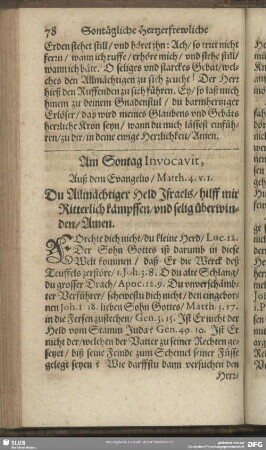 78 Sontägliche Hertzerfrewliche
Erden stehet still/ vnd höret jhn: Ach/ so tritt nicht
fern/ wann ich ruffe/ erhöre mich/ vnd stehe still/
wann ich bäte. O seliges vnd starckes Gebät/ wel-
ches den Allmächtigen zu sich zeucht! Der Herr
hieß den Ruffenden zu sich führen. Ey/ so laß mich
zu deinem Gnadenstul/ du barmhertziger
Erlöser/ das wird meines Glaubens vnd Gebäts
herrliche Kron seyn/ wann du mich lässest einfüh-
ren/ zu dir/ in deine ewige Herrlichkeit/ Amen.
Am Sontag Invocavit,
Auß dem Evangelio/ Matth. 4. v. 1.
Du Allmächtiger Held Jsraels/ hilff mir
Ritterlich kämpffen/ vnd selig überwin-
den/ Amen.
FOrchte dich nicht/ du kleine Herd/ Luc. 12.
Der Sohn Gottes ist darumb in diese
Welt kommen/ daß Er die Werck deß
Teuffels zerstöre/ 1. Joh. 3. 8. O du alte Schlang/
du grosser Drach/ Apoc. 12. 9. Du vnverschämb-
ter Verführer/ schewestu dich nicht/ den eingebor-
nen Joh. 1. 18. lieben Sohn Gottes/ Matth. 3. 17.
in die Fersen zustechen/ Gen. 3. 15. Ist Er nicht der
Held vom Stamm Juda? Gen. 49. 10. Ist Er
nicht der/ welchen der Vatter zu seiner Rechten ge-
setzet/ biß seine Feind zum Schemel seiner Füsse
gelegt seyen? Wie darffstu dann versuchen den
Herr/
SLUB